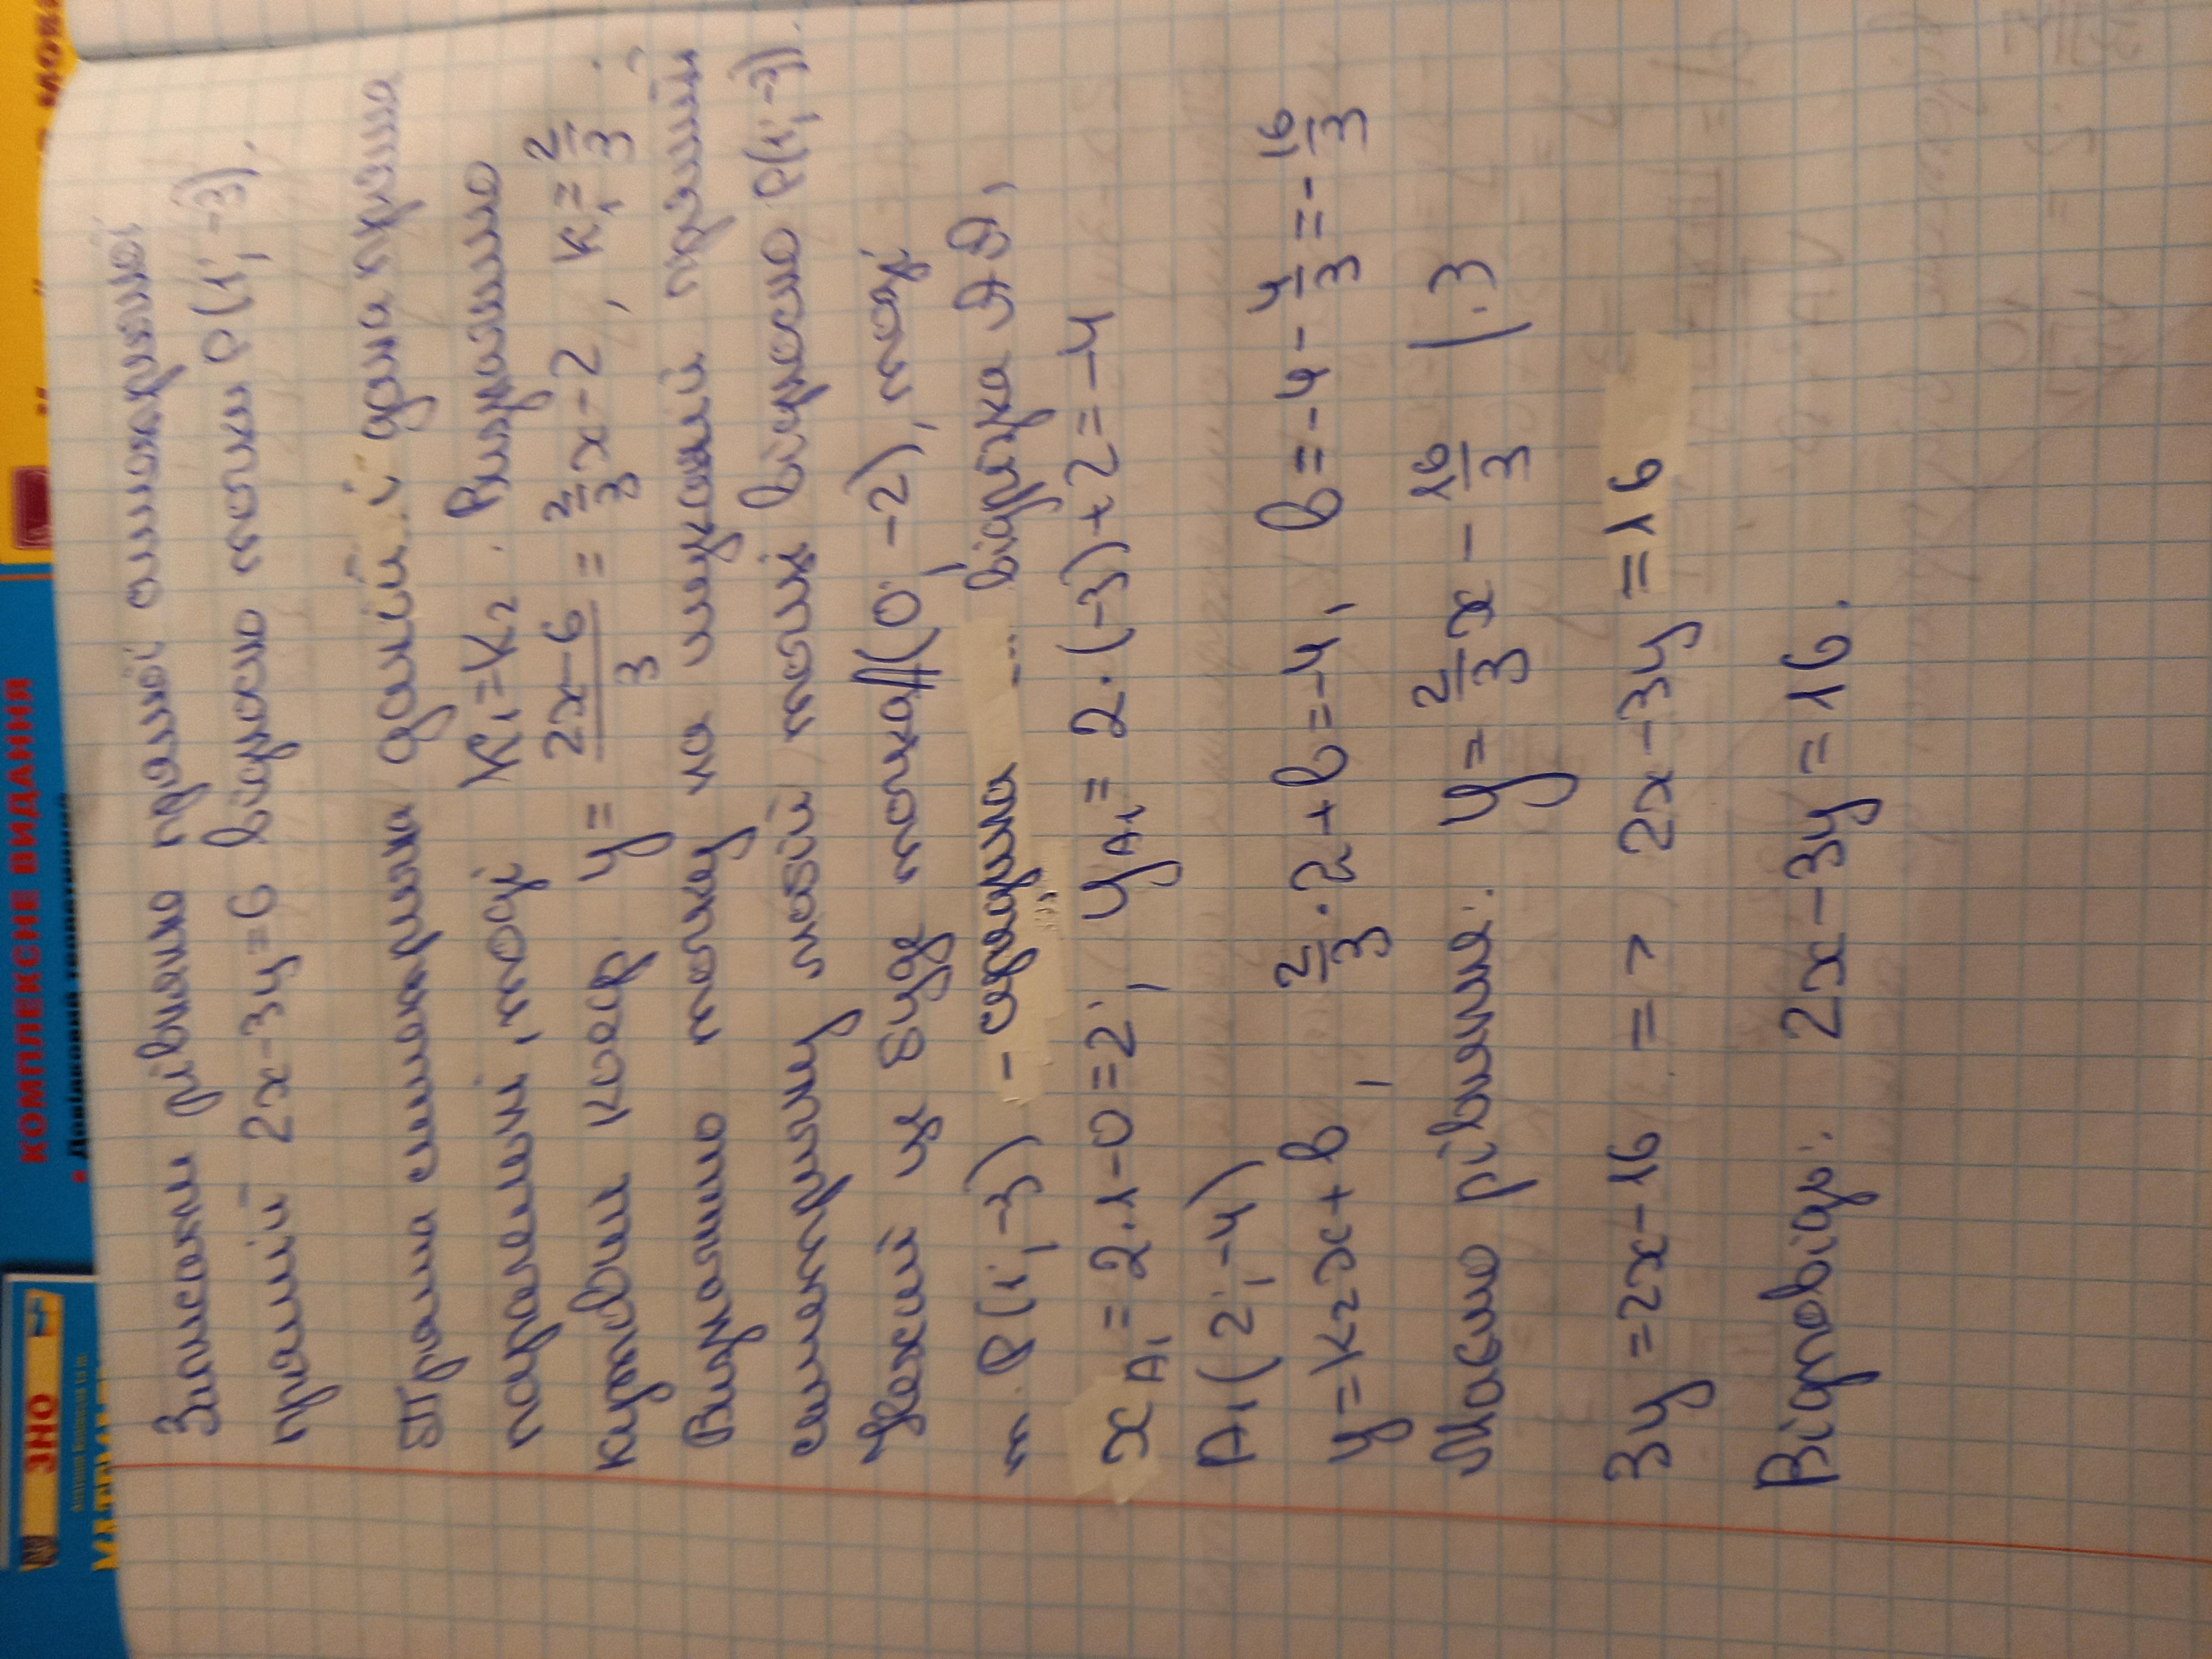 КОМПЛЕКСНЕ ВИДАННЯ
ЗНО
Записати рівняння прямої симетричної
прямій 2x-3y=6 відносно точки P(1;-3).
Пряма симетрична даній і дана пряма
паралельні, тоді K₁=K₂. Визначимо
кутовий коеф. y = \frac{2x-6}{3} = \frac{2}{3}x-2, K₁=\frac{2}{3}.
Визначимо точку на шуканій прямій
симетричну любій точці відносно P(1;-3).
Нехай це буде точка A(0;-2), тоді
т. P(1;-3) - середина відрізка AA₁
x_{A₁}=2·1-0=2; y_{A₁}=2·(-3)+2=-4
A₁(2;-4)
y=K₂x+b, \frac{2}{3}·2+b=-4, b=-4-\frac{4}{3}=-\frac{16}{3}
Маємо рівняння: y=\frac{2}{3}x-\frac{16}{3} |·3
3y=2x-16 => 2x-3y=16
Відповідь: 2x-3y=16.